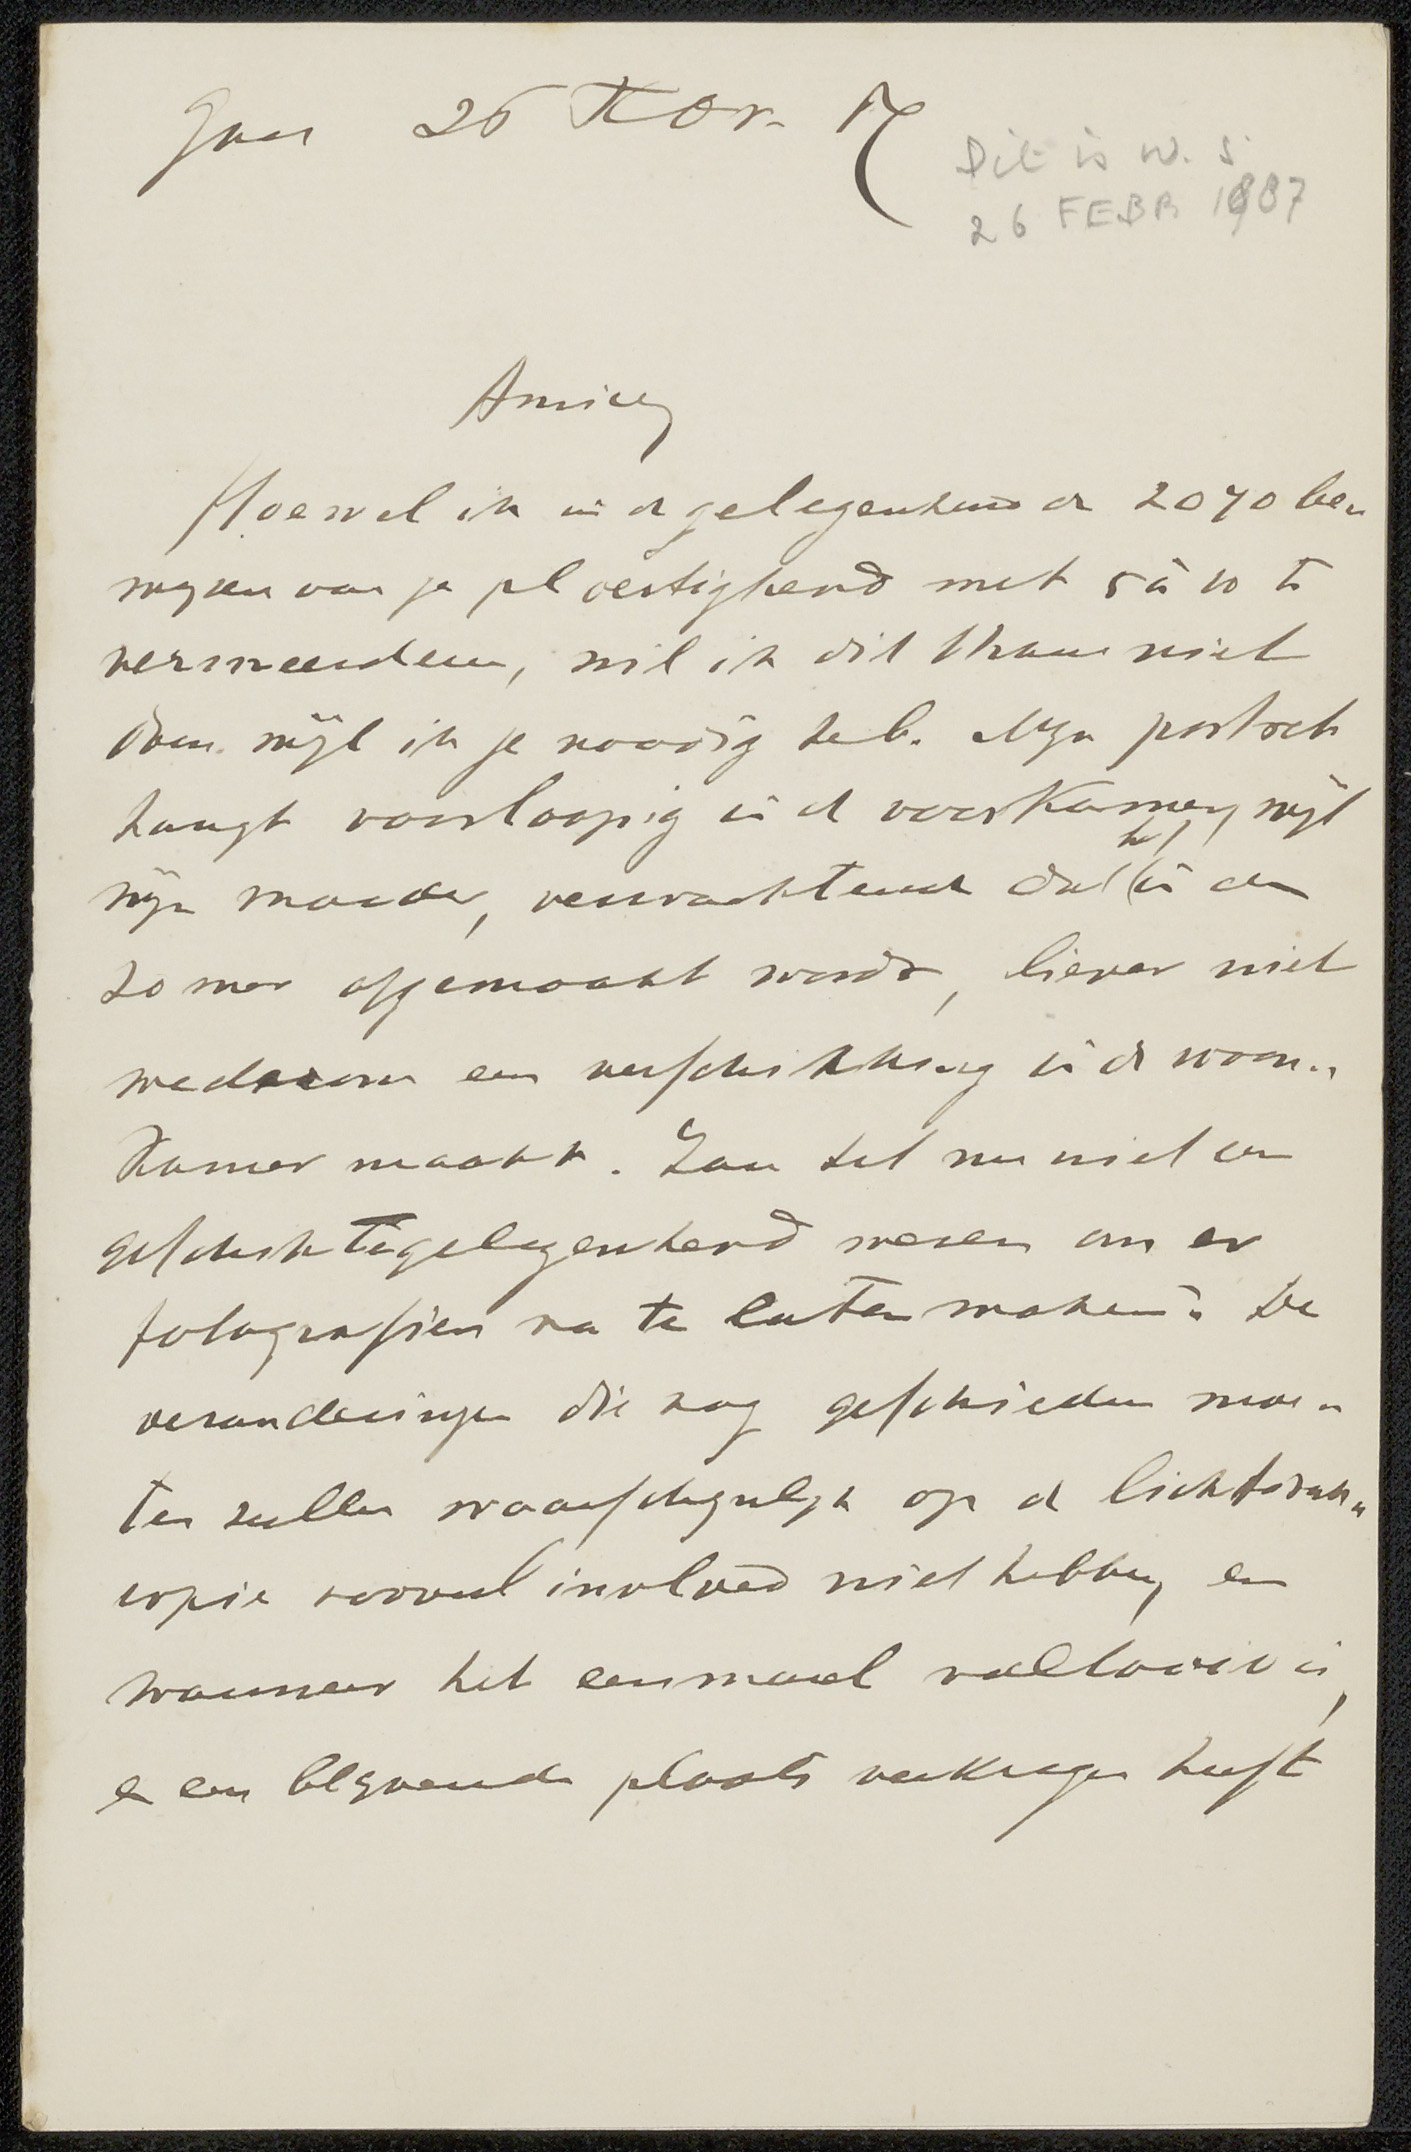 26
Dit is w. s.
26 FEBR 1887
Amice,
Hoewel ik in de gelegenheid de 2070 be„
wijzen van je pl met 5 à 10 te
vermeerderen, wil ik dit thans niet
doen wijl ik je noodig heb. Mijn portret
hangt voorloopig in d voorkamer, wijl
mijn moeder, verwachtende dat het in den
zomer afgemaakt wordt, liever niet
wederom een verschikking in de woon„
kamer maakt. Zou het nu niet een
geschikte gelegenheid wezen om er
fotografien na te laten maken? De
veranderingen die nog geschieden moe„
ten zullen waarschijnlijk op d lichtdruk„
copie zooveel invloed niet hebben, en
wanneer het eenmaal voltooid is,
en een blijvende plaats verkregen heeft